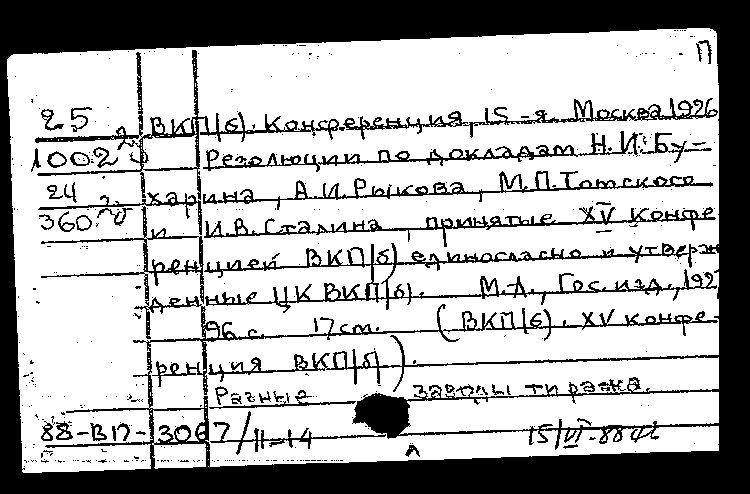 П
25 ВКП(б). Конференция, 15-я. Москва 1926
1002 Резолюции по докладам Н.И. Бу-
24 харина, А.И. Рыкова, М.П. Томского
360 и И.В. Сталина, принятые XV конфе
ренцией ВКП(б) единогласно и утверж
денные ЦК ВКП(б). М.Л., Гос. изд., 192
96 с. 17 см. (ВКП(б). XV конфе-
ренция ВКП(б)).
Разные заводы тиража.
88-ВП-3067/11-14 15/VI-88